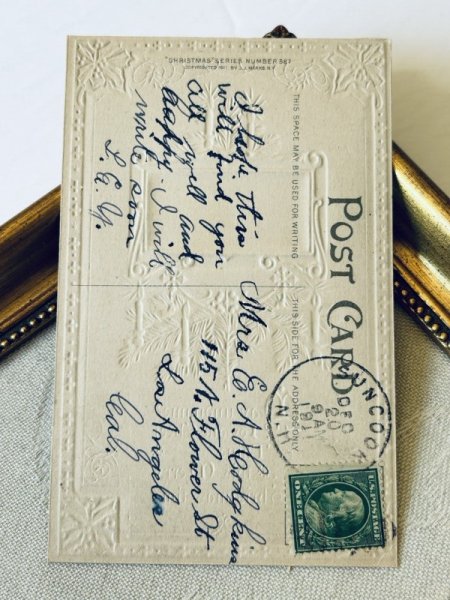 "CHRISTMAS" SERIES NUMBER 587
COPYRIGHTED 1911 BY J.J. MARKS, N.Y.
POST CARD
THIS SPACE MAY BE USED FOR WRITING
THIS SIDE FOR THE ADDRESS ONLY
I hope this
will find you
all well and
happy. I will
write soon
L. E. Y.
Mrs E. A. Hodgkins
115 N. Flower St
Los Angeles
Cal.
UNCOOK
DEC
20
9 AM
1911
N.H.
U.S. POSTAGE
ONE CENT